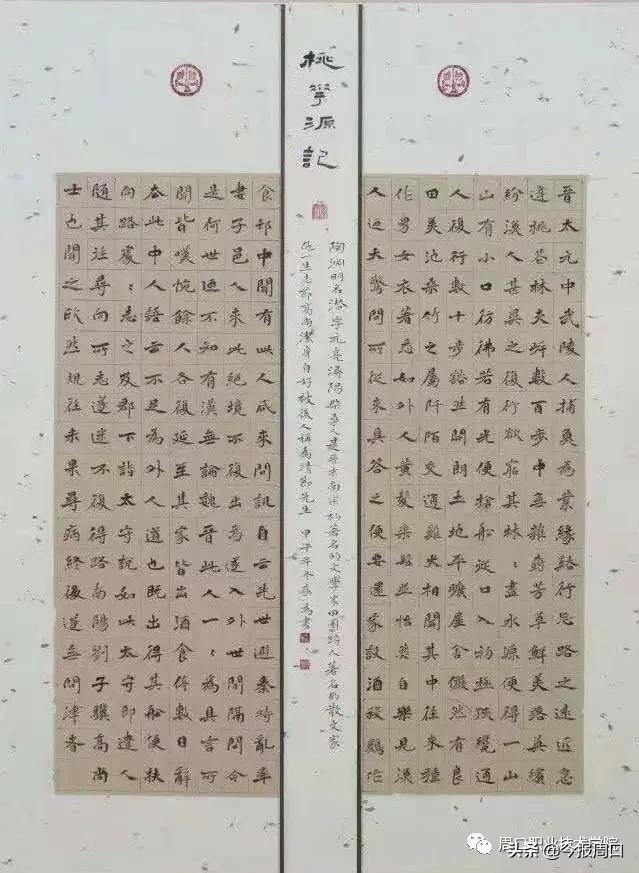 桃花源記
晉太元中武陵人捕魚為業緣谿行忘路之遠近忽
逢桃花林夾岸數百步中無雜樹芳草鮮美落英繽
紛漁人甚異之復行欲窮其林〻盡水源便得一山
山有小口彷彿若有光便捨船從口入初極狹纔通
人復行數十步豁然開朗土地平曠屋舍儼然有良
田美池桑竹之屬阡陌交通雞犬相聞其中往來種
作男女衣著悉如外人黃髮垂髫並怡然自樂見漁
人迺大驚問所從來具答之便要還家設酒殺雞作
陶淵明名潛字元亮潯陽柴桑人是晉末南宋初著名的文學家田園詩人著名的散文家
他一生志節高尚潔身自好被後人稱為靖節先生 甲午年冬 為書
食邨中聞有此人咸來問訊自云先世避秦時亂率
妻子邑人來此絕境不復出焉遂入外世間隔問今
是何世迺不知有漢無論魏晉此人一〻為具言所
聞皆嘆惋餘人各復延至其家皆出酒食停數日辭
去此中人語云不足為外人道也既出得其船便扶
向路處〻志之及郡下詣太守說如此太守即遣人
隨其往尋向所志遂迷不復得路南陽劉子驥高尚
士也聞之欣然規往未果尋病終後遂無問津者
周口职业技术学院
头条 @今报周口